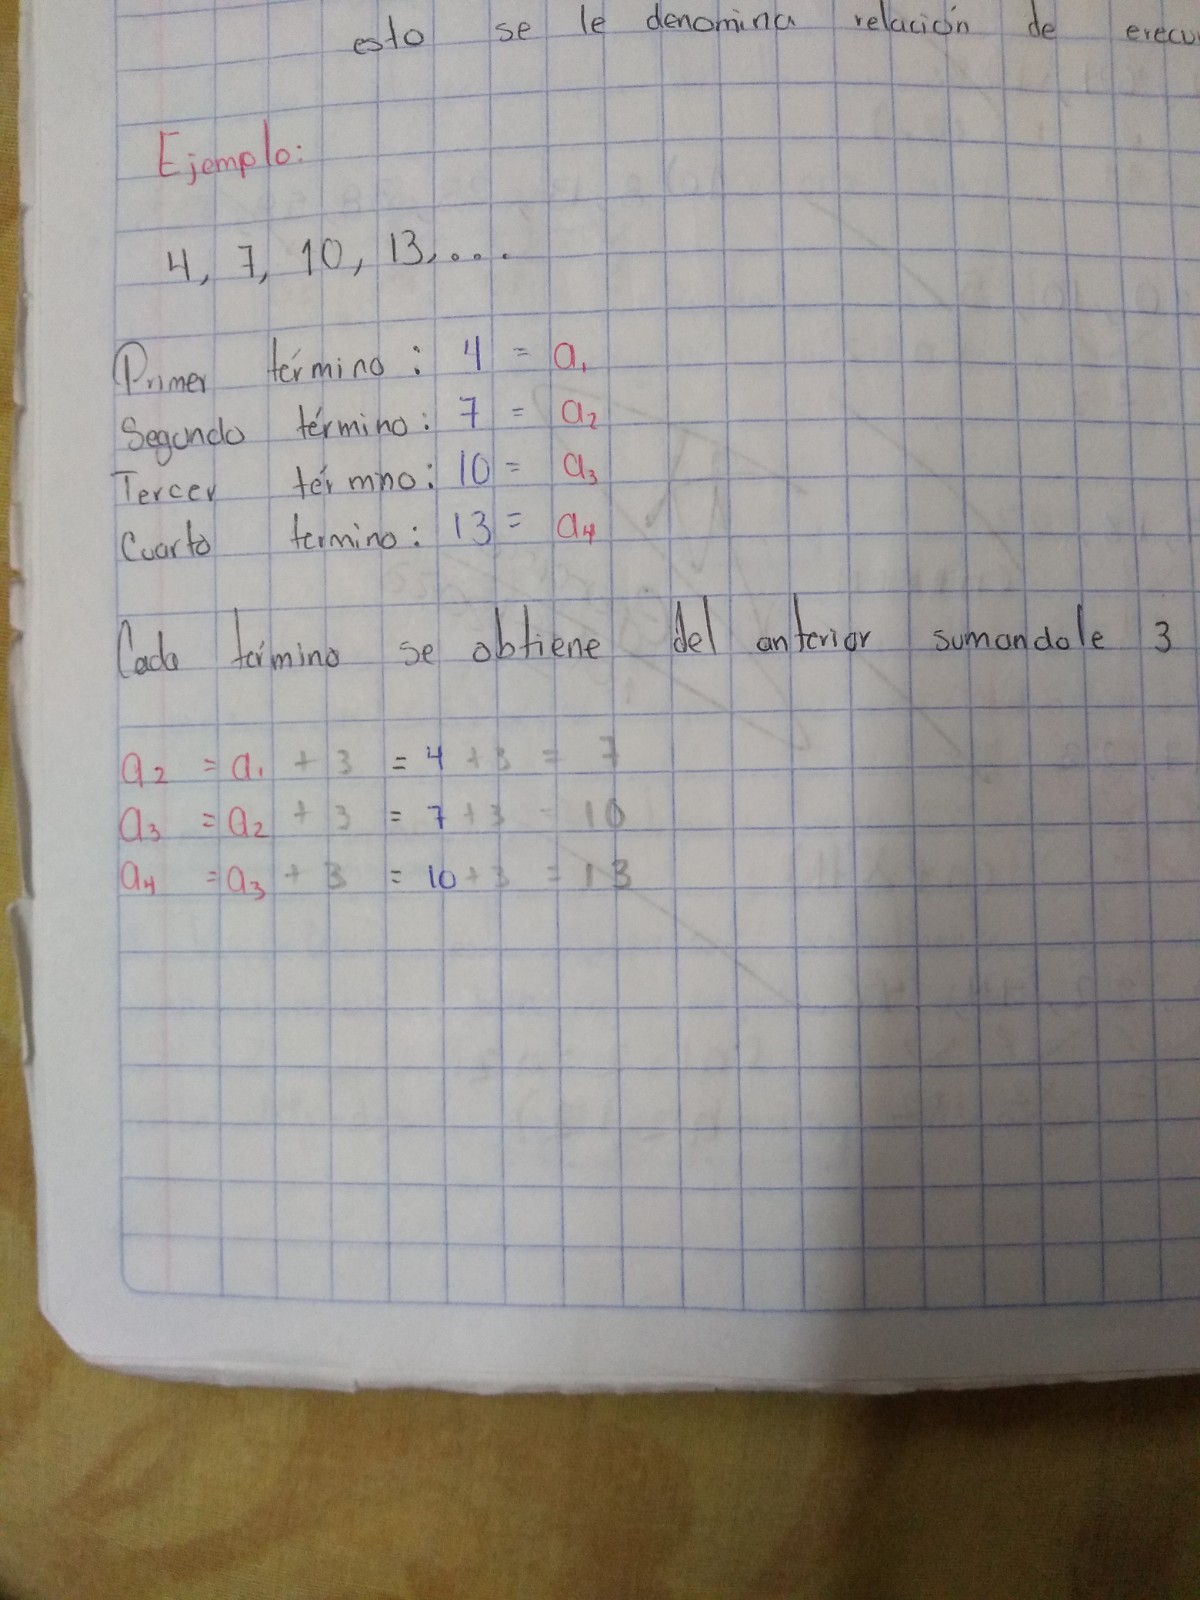 esto se le denomina relación de erecu
Ejemplo:
4, 7, 10, 13, ...
Primer término: 4 = a₁
Segundo término: 7 = a₂
Tercer térmno: 10 = a₃
Cuarto termino: 13 = a₄
Cada término se obtiene del anterior sumandole 3
a₂ = a₁ + 3 = 4 + 3 = 7
a₃ = a₂ + 3 = 7 + 3 = 10
a₄ = a₃ + 3 = 10 + 3 = 13